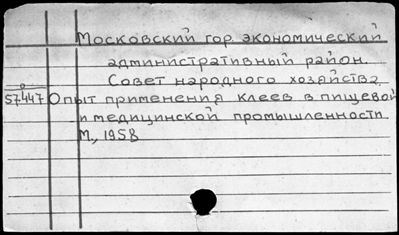 Московский гор. экономический
административный район.
Совет народного хозяйства.
57447 Опыт применения клеев в пищевой
и медицинской промышленности.
М., 1958